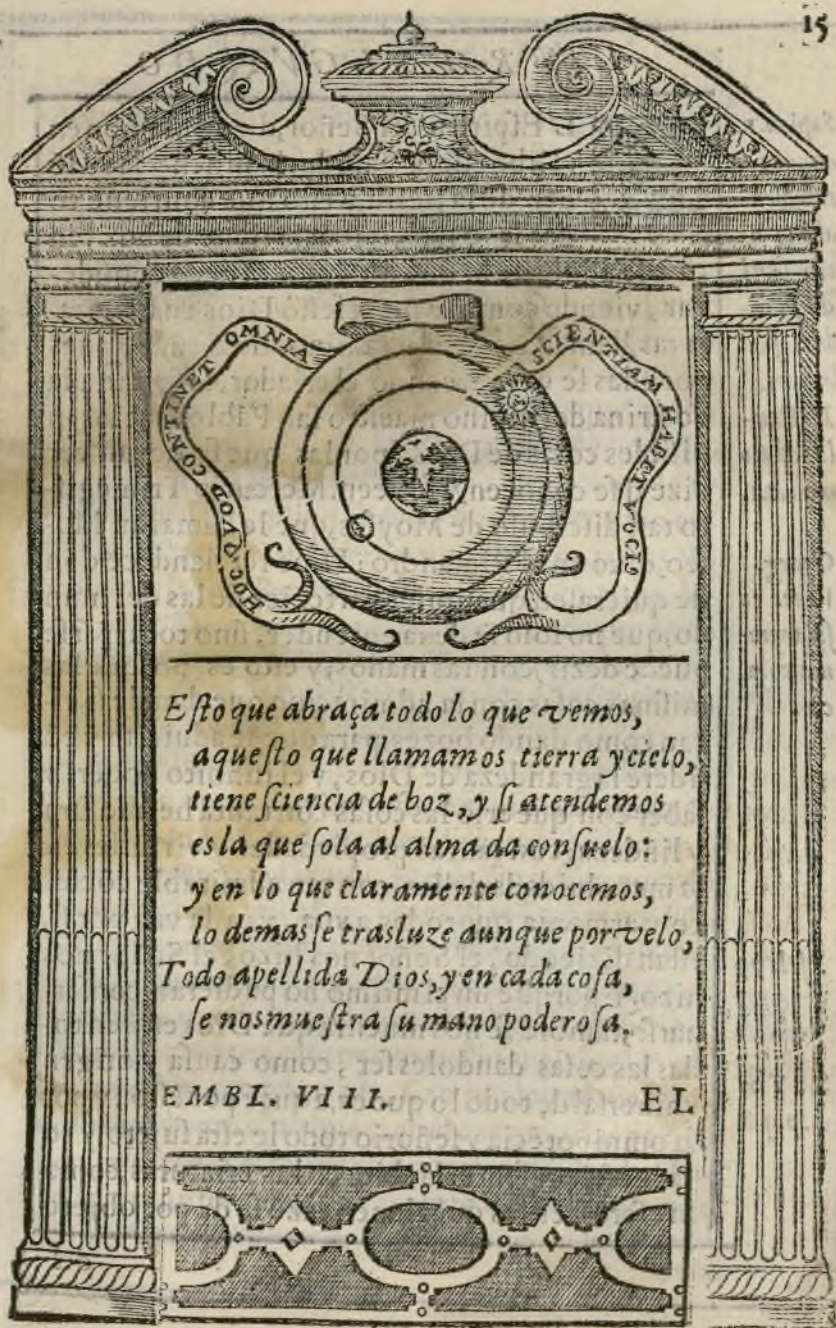 15
HOC QVOD CONTINET OMNIA
SCIENTIAM HABET VOCIS
Esto que abraça todo lo que vemos,
aquesto que llamamos tierra y cielo,
tiene sciencia de boz, y si atendemos
es la que sola al alma da consuelo:
y en lo que claramente conocemos,
lo demas se trasluze aunque por velo,
Todo apellida Dios, y en cada cosa,
se nos muestra su mano poderosa.
EMBL. VIII. EL